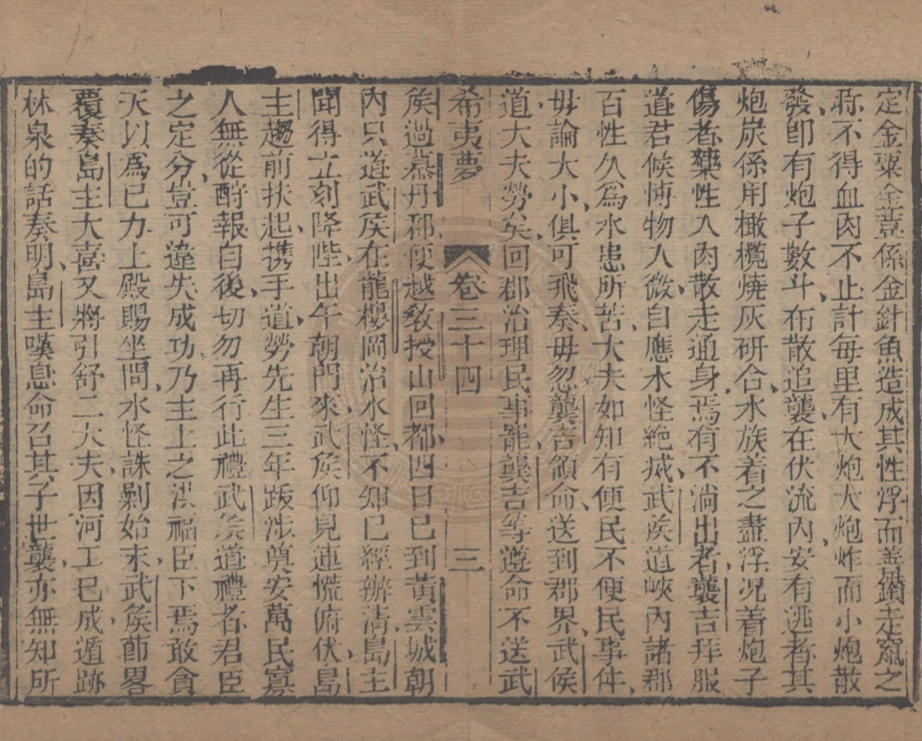 定金粟金蓋係金針魚造成其性浮而善鑽走竄之
称不得血肉不止計每里有大炮大炮炸而小炮散
發卽有炮子數斗布散追襲在伏流內安有逃者其
炮炭係用橄欖燒灰研合水族着之盡浮况着炮子
傷者藥性入肉散走通身焉有不淌出者襲吉拜服
道君候博物入微自應水怪絶滅武矦道峽內諸郡
百性久爲水患所苦大夫如知有便民不便民事件
毋論大小俱可飛奏毋忽龔吉領命送到郡界武候
道大夫勞矣回郡治理民事罷龔吉等遵命不送武
希夷夢 卷三十四 三
矦過慕丹郡便越敎授山回都四日已到黃雲城朝
內只道武矦在龍樓岡治水怪不知已經辦清島主
聞得立刻降陛出午朝門來武矦仰見連慌俯伏島
主趨前扶起携手道勞先生三年䟦涉奠安萬民寡
人無從酧報自後切勿再行此禮武矦道禮者君臣
之定分豈可違失成功乃主上之洪福臣下焉敢貪
天以爲己力上殿賜坐問水怪誅剿始末武矦節畧
覆奏島主大喜又將引舒二大夫因河工已成遁跡
林泉的話奏明島主嘆息命召其子世襲亦無知所